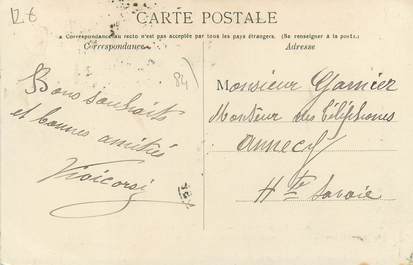 12 €
CARTE POSTALE
La Correspondance au recto n'est pas acceptée par tous les pays étrangers. (Se renseigner à la poste.)
Correspondance
Adresse
84
Bons souhaits
et bonnes amitiés
Monsieur Garnier
Monteur des téléphones
Annecy
Hte Savoie